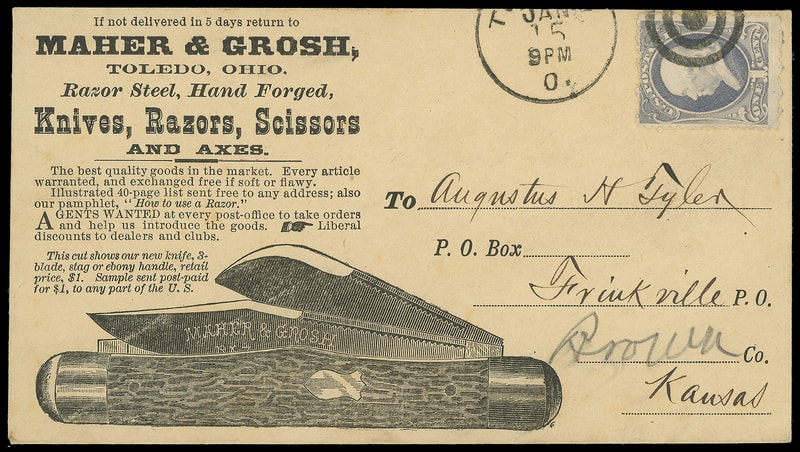 If not delivered in 5 days return to
MAHER & GROSH,
TOLEDO, OHIO.
Razor Steel, Hand Forged,
Knives, Razors, Scissors
AND AXES.
The best quality goods in the market. Every article
warranted, and exchanged free if soft or flawy.
Illustrated 40-page list sent free to any address; also
our pamphlet, "How to use a Razor."
AGENTS WANTED at every post-office to take orders
and help us introduce the goods. Liberal
discounts to dealers and clubs.
This cut shows our new knife, 3-
blade, stag or ebony handle, retail
price, $1. Sample sent post-paid
for $1, to any part of the U. S.
MAHER & GROSH
JAN
15
9PM
O.
To Augustus H Tyler
P. O. Box
Frinkville P. O.
Brown Co.
Kansas